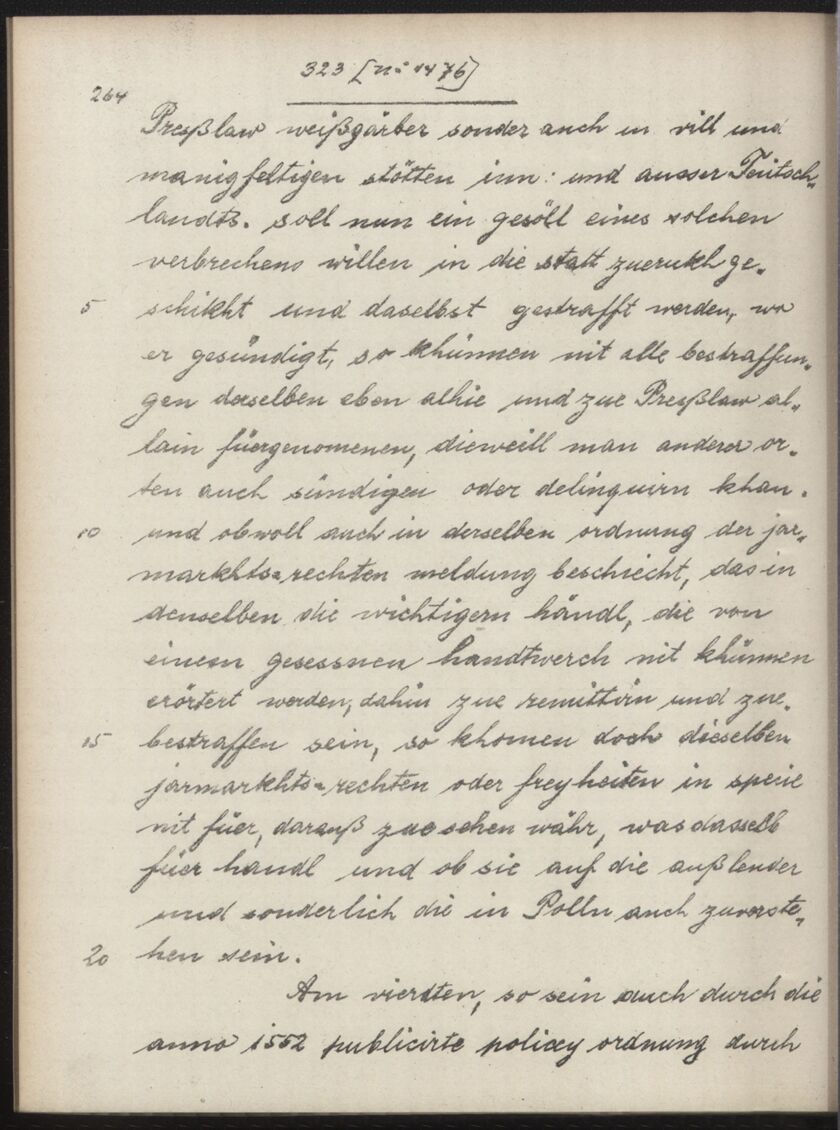 323 [No 1476]
264
Preßlaw weißgärber sonder auch in vill und
manigfeltigen stötten inn: und ausser Teutsch-
landts. soll nun ein gesöll eines solchen
verbrechens willen in die statt zuerukh ge-
5 schikht und daselbst gestrafft werden, wo
er gesündigt, so khünnen nit alle bestraffun-
gen derselben eben alhie und zue Preßlaw al-
lain füergenomenen, dieweill man anderer or-
ten auch sündigen oder delinquirn khan.
10 und obwoll auch in derselben ordnung der jar-
markhts-rechten meldung beschiecht, das in
denselben die wichtigern händl, die von
einem gesessnen handtwerch nit khünnen
erörtert werden, dahin zue remittirn und zue-
15 bestraffen sein, so khomen doch dieselben
jarmarkhts-rechten oder freyheiten in specie
nit füer, darauß zue sehen währ, was dasselb
füer handl und ob sie auf die außlender
und sonderlich die in Polln auch zuverste-
20 hen sein.
Am vierdten, so sein auch durch die
anno 1552 publicirte policey ordnung durch